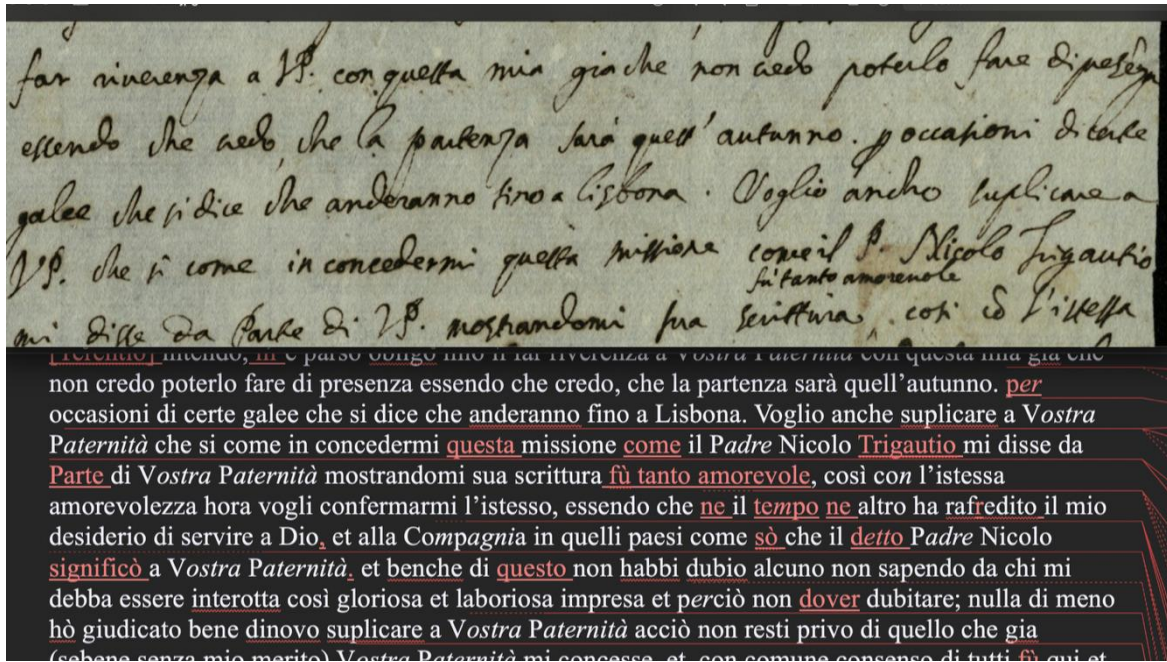 far riverenza a VP. con questa mia gia che non credo poterlo fare di presenza
essendo che credo, che la partenza sarà quest' autunno. p occasioni di certe
galee che si dice che anderanno fino a Lisbona. Voglio ancho suplicare a
VP. che si come in concedermi questa missione come il P. Nicolo Trigautio
fu' tanto amorevole
mi disse da Parte di VP. mostrandomi sua scrittura, cosi cō l'istessa
[Terentio] intendo, m'è parso obligo mio il far riverenza a Vostra Paternità con questa mia già che
non credo poterlo fare di presenza essendo che credo, che la partenza sarà quell'autunno. per
occasioni di certe galee che si dice che anderanno fino a Lisbona. Voglio anche suplicare a Vostra
Paternità che si come in concedermi questa missione come il Padre Nicolo Trigautio mi disse da
Parte di Vostra Paternità mostrandomi sua scrittura fù tanto amorevole, così con l'istessa
amorevolezza hora vogli confermarmi l'istesso, essendo che ne il tempo ne altro ha rafredito il mio
desiderio di servire a Dio, et alla Compagnia in quelli paesi come sò che il detto Padre Nicolo
significò a Vostra Paternità. et benche di questo non habbi dubio alcuno non sapendo da chi mi
debba essere interotta così gloriosa et laboriosa impresa et perciò non dover dubitare; nulla di meno
hò giudicato bene dinovo suplicare a Vostra Paternità acciò non resti privo di quello che gia
(sebene senza mio merito) Vostra Paternità mi concesse, et, con comune consenso di tutti fù qui et